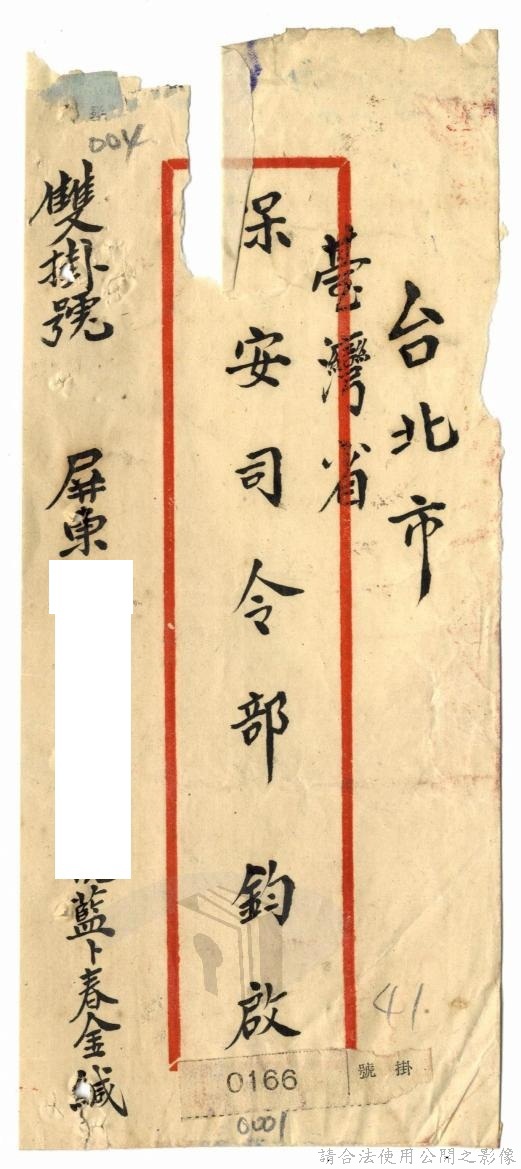 台北市
臺灣省
保安司令部 鈞啟
雙掛號
屏東
藍卜春金緘
004
41
掛號
0166
0001
請合法使用公開之影像